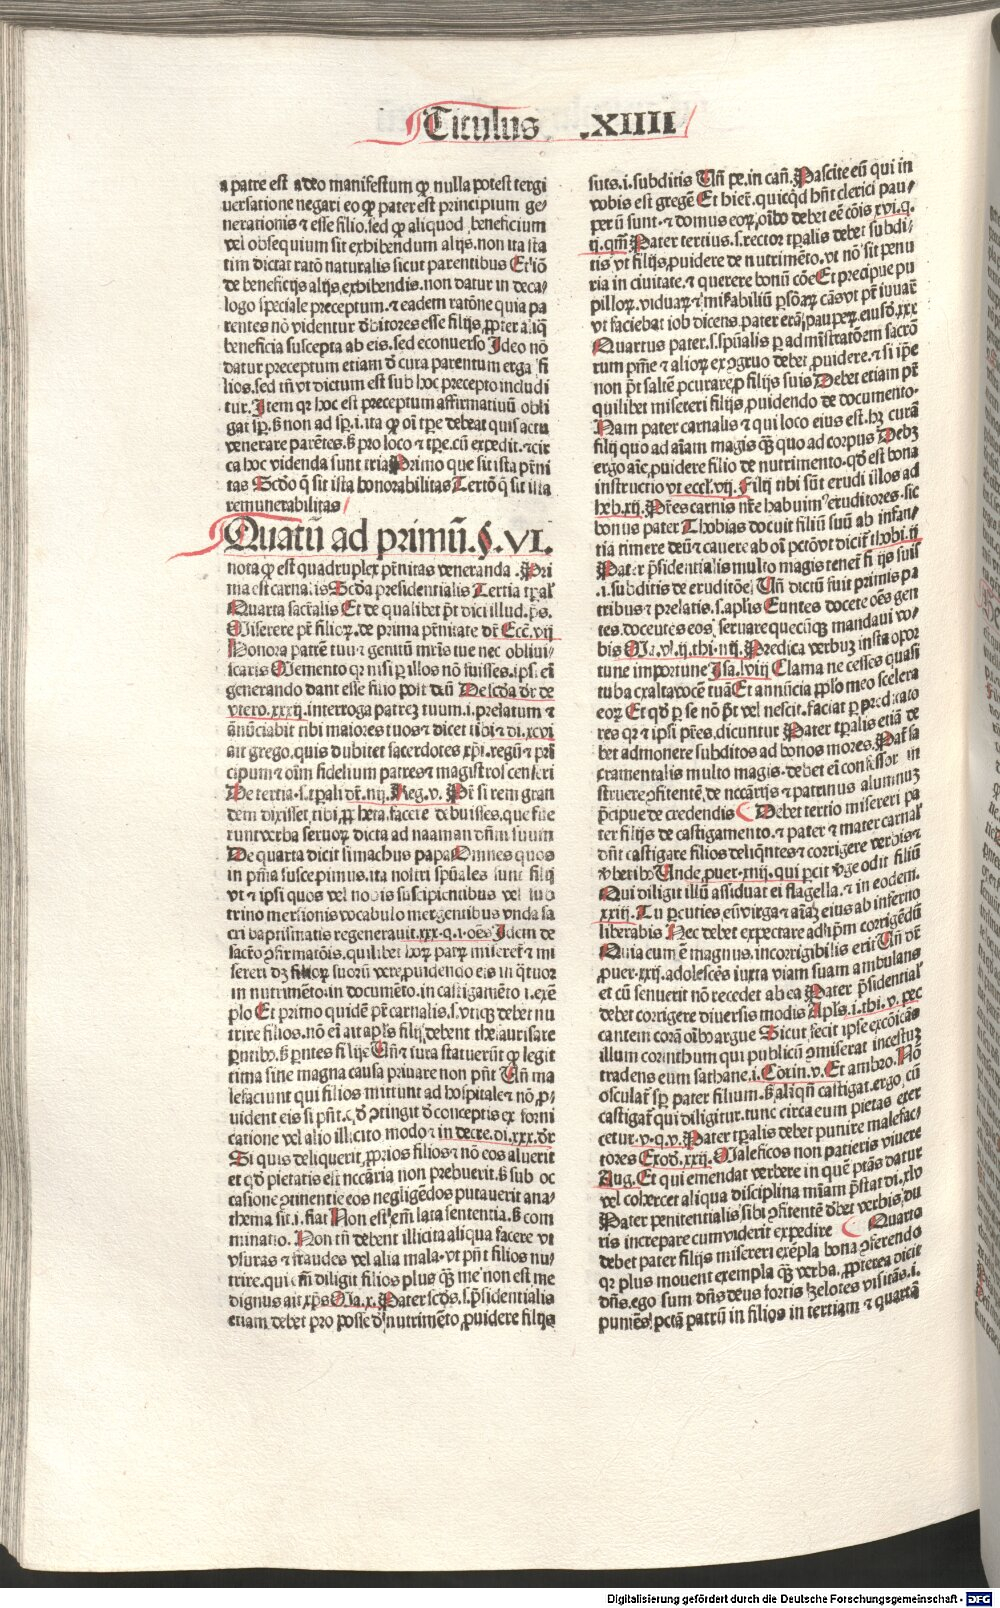 Titulus .XIIII
a patre est adeo manifestum ꝙ nulla potest tergi
uersatione negari eo ꝙ pater est principium ge-
nerationis ⁊ esse filio. sed ꝙ aliquod beneficium
vel obsequium sit exhibendum alijs. non ita sta
tim dictat ratō naturalis sicut parentibus Et iō
de beneficijs alijs exhibendis. non datur in deca-
logo speciale preceptum. ⁊ eadem ratōne quia pa
rentes nō videntur debitores esse filijs ꝓpter aliq̄
beneficia suscepta ab eis. sed econuerso Ideo nō
datur preceptum etiam de cura parentum erga fi
lios. sed tn̄ vt dictum est sub hoc precepto includi
tur. Item qr hoc est preceptum affirmatiuū obli
gat sp̄. s̄ non ad sp̄. i. ita ꝙ oī tp̄e debeat quis actu
venerare parētes. s̄ pro loco ⁊ tp̄e. cū expedit. ⁊ cir
ca hoc videnda sunt tria Primo que sit ista pr̄ni
tas Scdo q̄ sit ista honorabilitas Tertō q̄ sit ista
remunerabilitas
Quatū ad primū. §. VI.
nota ꝙ est quadruplex pr̄nitas veneranda. Pri
ma est carnalis Scda presidentialis Tertia tpal̄
Quarta sacr̄alis Et de qualibet pt̄ dici illud. ps.
Miserere pr̄ filioꝝ. de prima pr̄nitate dr̄ Ecc̄. vij
Honora patrē tuū ⁊ gemitū mr̄is tue nec obliui-
scaris Memento qr nisi ꝑ illos nō fuisses. ipsi. eī
generando dant esse filio post deū De scda dr̄ de
vtero. xxxij. interroga patreʒ tuum. i. prelatum ⁊
ānūciabit tibi maiores tuos ⁊ dicet tibi ⁊ di. xcvi
ait grego. quis dubitet sacerdotes xp̄i. regū ⁊ prī
cipum ⁊ oīm fidelium patres ⁊ magistros censeri
De tertia. s. tp̄ali dr̄. iiij. Reg. v. Pr̄ si rem gran
dem dixisset tibi ꝓpheta. facere debuisses. que fue
runt verba seruoꝝ dicta ad naaman dn̄m suum
De quarta dicit simachus papa Omnes quos
in pn̄ia suscepimus. ita nostri spūales sunt filij
vt ⁊ ipsi quos vel nobis suscipientibus vel sub
trino mersionis vocabulo mergentibus vnda sa
cri baptismatis regenerauit. xxx. q. i. oēs Idem de
sacr̄o ꝯfirmatōis. quilibet hoꝝ patꝝ miseret̄ ⁊ mi
sereri dʒ filioꝝ suorū vere ꝓuidendo eis in q̄tuor
in nutrimēto. in documēto. in castigamēto ⁊ exē
plo Et primo quidē pr̄ carnalis. s. vtiqꝫ debet nu
trire filios. nō eī ait apl̄s filij debent thesaurisare
ꝑntibꝫ. s̄ ꝑntes filijs Un̄ ⁊ iura statuerūt ꝙ legit
tima sine magna causa priuare non pn̄t Un̄ ma
lefaciunt qui filios mittunt ad hospitale ⁊ nō ꝓ-
uident eis si pn̄t. qd̄ ꝯtingit de conceptis ex forni
catione vel alio illicito modo ⁊ in decre. di. xxx. dr̄
Si quis deliquerit ꝓprios filios ⁊ nō eos aluerit
et qd̄ pietatis eīt nccāria non prebuerit. s̄ sub oc
casione ꝯtinentie eos negligēdos putauerit ana-
thema sit. i. fiat Non est em̄ lata sententia. s̄ com
minatio. Non tn̄ debent illicita aliqua facere vt
vsuras ⁊ fraudes vel alia mala. vt pn̄t filios nu-
trire. qui em̄ diligit filios plus qꝫ me non est me
dignus ait xp̄s Ma. x. Pater scds. s. p̄sidentialis
etiam debet pro posse de nutrimēto ꝓuidere filijs
suis. i. subditis Un̄ pe. in can̄. Pascite eū qui in
vobis est gregē Et hierē. quicqd hn̄t clerici pau-
perū sunt. ⁊ domus eoꝝ oībꝫ debet eē cōis xvi. q.
ij. qm̄ Pater tertius. s. rector tp̄alis debet subdi-
tis vt filijs ꝓuidere de nutrimēto. vt nō sit penu
ria in ciuitate. ⁊ querere bonū cōe Et precipue pu
pilloꝝ. viduaꝝ ⁊ misābiliū psōaꝝ cās vt pt̄ iuuar̄
vt faciebat iob dicens. pater erā pauꝑeꝝ. eiusd. xxx
Quartus pater. s. spūalis ꝑ administratōem sacrō
rum pn̄ie ⁊ alioꝝ ex ꝯgruo debet ꝓuidere. ⁊ si ip̄e
non pt̄ saltē ꝓcurare ꝓ filijs suis Debet etiam pr̄
quilibet misereri filijs ꝓuidendo de documento.
Nam pater carnalis ⁊ qui loco eius est. hꝫ curā
filij quo ad aīam magis qꝫ quo ad corpus Debꝫ
ergo aīe ꝓuidere filio de nutrimento. qd̄ est bona
instructio vt eccl̄. vij. Filij tibi sūt erudi illos ad
heb. xij. Pr̄es carnis nr̄e habuimꝰ eruditores. sic
bonus pater Thobias docuit filiū suū ab infan-
tia timere deū ⁊ cauere ab oī pctō vt dicit̄ thobi. ij
Pater p̄sidentialis multo magis tenet̄ in ijs suis
.i. subditis de eruditōe Un̄ dictū fuit primis pa
tribus ⁊ prelatis. s. aplis Euntes docete oēs gen
tes. docentes eos seruare quecūqꝫ mandaui vo-
bis Ma. vl. ij. thi. iiij. Predica verbuʒ insta opor
tune importune Isa. lviij Clama ne cesses quasi
tuba exalta vocē tuā Et annūcia pplo meo scelera
eoꝝ Et qd̄ ꝑ se nō pt̄ vel nescit. faciat ꝑ predicato
res qr ⁊ ipsi pr̄es. dicuntur Pater tp̄alis etiā de
bet admonere subditos ad bonos mores. Pat̄ sa
cramentalis multo magis. debet eī confessor in
struere ꝯfitentē. de nccārijs ⁊ patrinus alumnuʒ
p̄cipue de credendis Debet tertio misereri pa
ter filijs de castigamento. ⁊ pater ⁊ mater carnal̄
dn̄t castigare filios deliq̄ntes ⁊ corrigere verbis ⁊
v̄beribꝫ Unde ꝓuer. xiij. qui ꝑcit v̄ge odit filiū
Qui diligit illū assiduat ei flagella. ⁊ in eodem.
xxiij. Tu ꝑcuties eū virga ⁊ aīaʒ eius ab inferno
liberabis Nec debet expectare adhpm̄ corrigēdū
Quia cum ē magnus. incorrigibilis erit Un̄ dr̄
ꝓuer. xxij. adolescēs iuxta viam suam ambulans
et cū senuerit nō recedet ab ea Pater p̄sidential̄
debet corrigere diuersis modis Apl̄s. i. thi. v. pec
cantem corā oībꝫ argue Sicut fecit ipse excōicās
illum corinthum qui publicū ꝯmiserat incestuʒ
tradens eum sathane. i. Corin. v. Et ambro. Nō
osculat̄ sp̄ pater filium. s̄ aliqn̄ castigat. ergo cū
castigat̄ qui diligitur. tunc circa eum pietas exer
cetur. v. q. v. Pater tp̄alis debet punire malefac-
tores Exod. xxij. Maleficos non patieris viuere
Aug. Et qui emendat verbere in quē ptās datur
vel cohercet aliqua disciplina mīam p̄stat di. xlv
Pater penitentialis sibi ꝯfitentē debet verbis du
ris increpare cum viderit expedire Quarto
debet pater filijs misereri exēpla bona ꝯferendo
qr plus mouent exempla qꝫ verba. ꝓpterea dicit
dn̄s. ego sum dn̄s deus fortis zelotes visitās. i.
puniēs pctā patrū in filios in tertiam ⁊ quartā
Digitalisierung gefördert durch die Deutsche Forschungsgemeinschaft - DFG